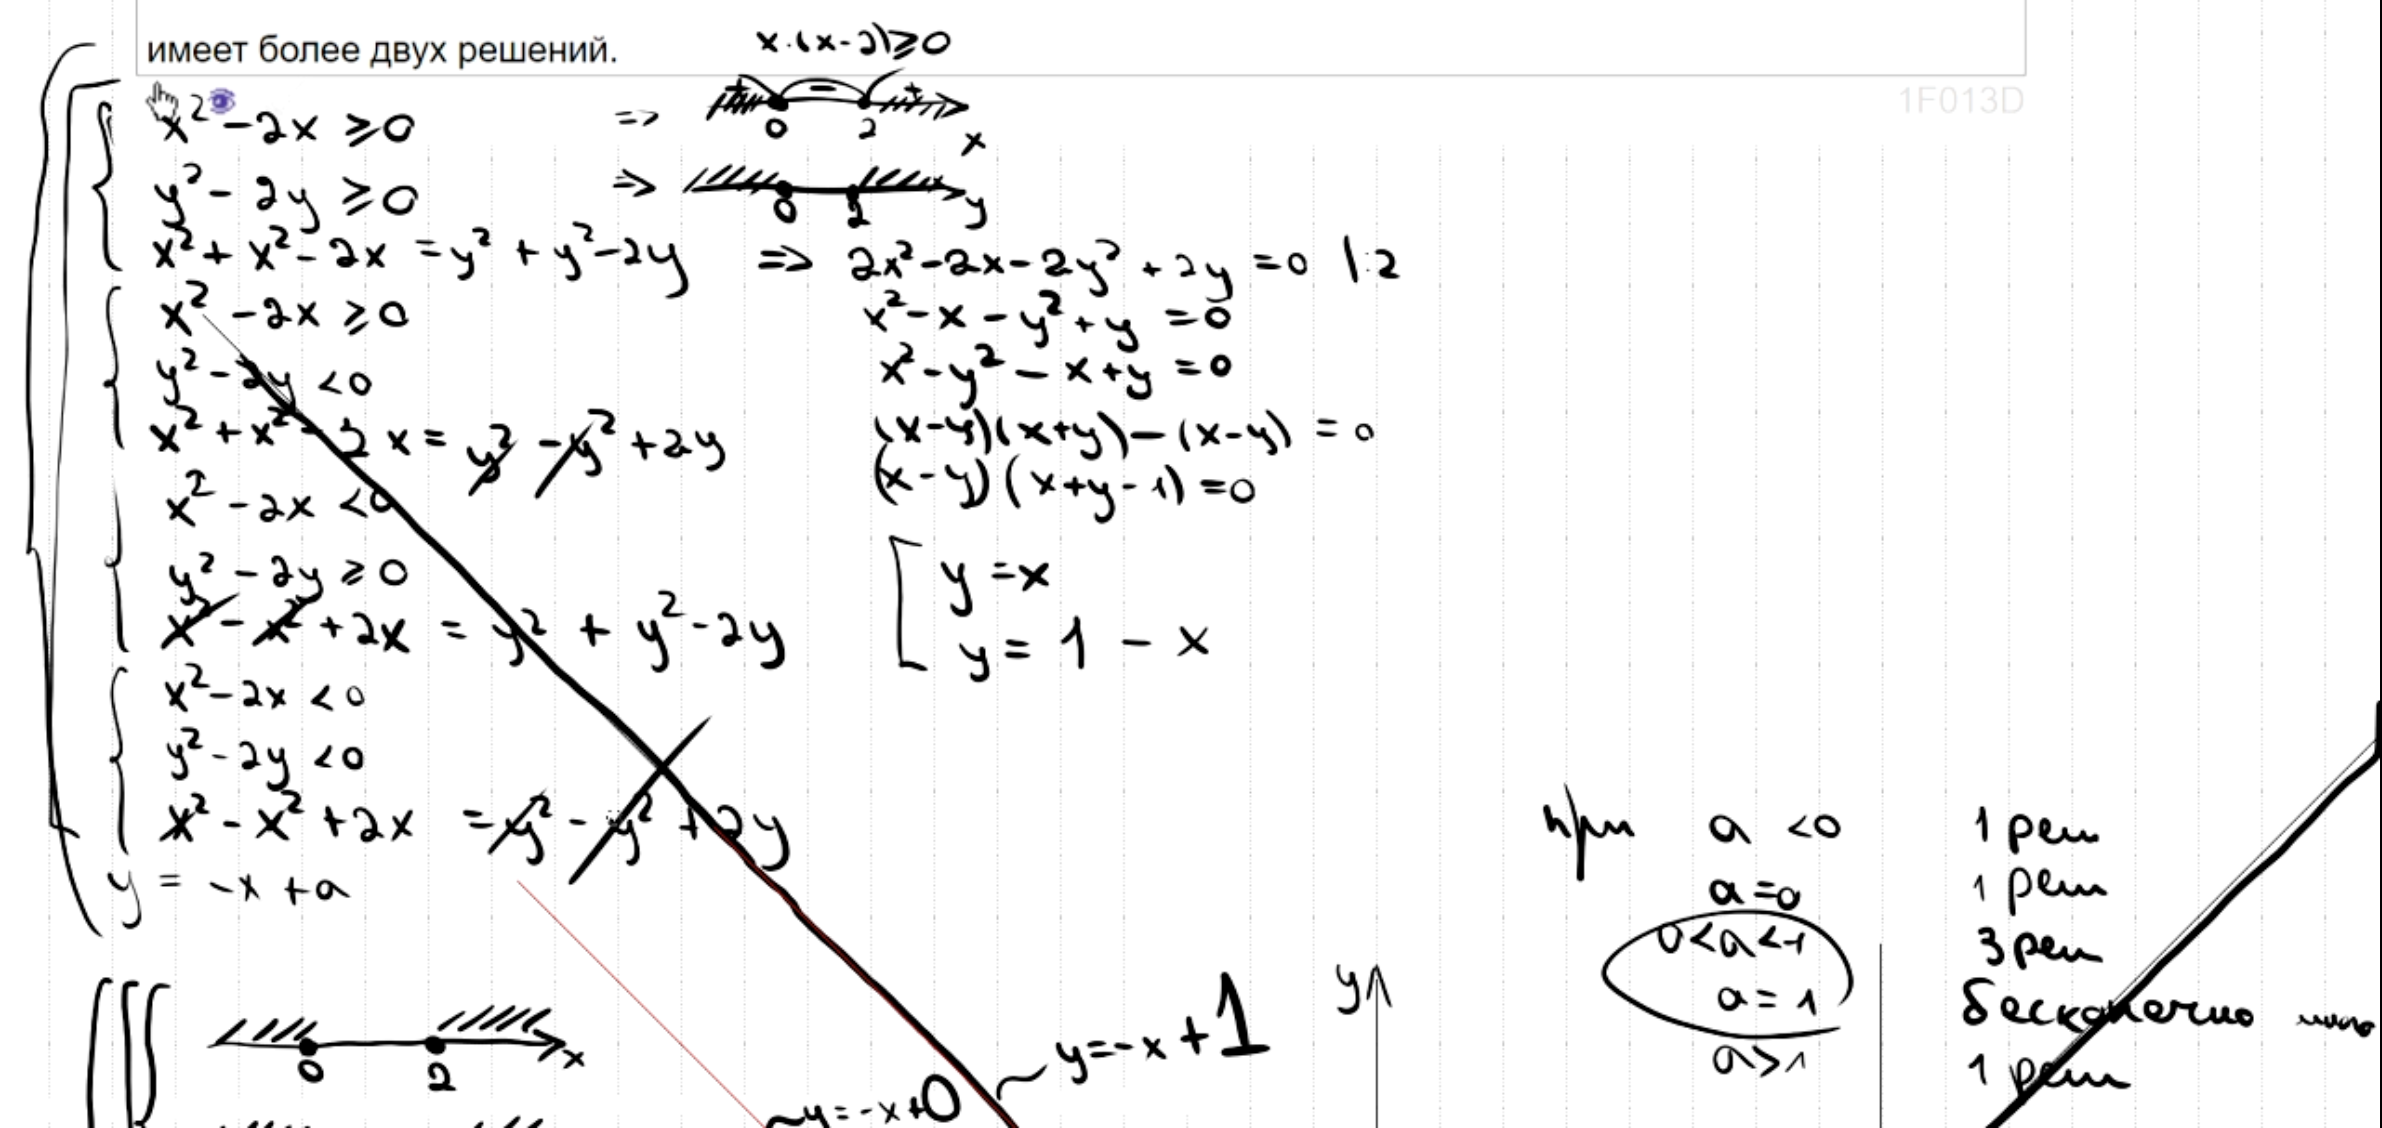 имеет более двух решений.
x·(x-2)≥0
1F013D
x² - 2x ≥ 0 =>
0 2 x
y² - 2y ≥ 0 =>
0 2 y
x² + x² - 2x = y² + y² - 2y => 2x² - 2x - 2y² + 2y = 0 |:2
x² - 2x ≥ 0
x² - x - y² + y = 0
y² - 2y < 0
x² - y² - x + y = 0
x² + x² - 2x = y² - y² + 2y
(x-y)(x+y) - (x-y) = 0
x² - 2x < 0
(x-y)(x+y-1) = 0
y² - 2y ≥ 0
y = x
x² - x² + 2x = y² + y² - 2y
y = 1 - x
x² - 2x < 0
y² - 2y < 0
x² - x² + 2x = y² - y² + 2y
y = -x + a
при a < 0 1 реш
a = 0 1 реш
0 < a < 1 3 реш
a = 1 бесконечно много
a > 1 1 реш
y
0 2 x
y = -x + 1
y = -x + 0